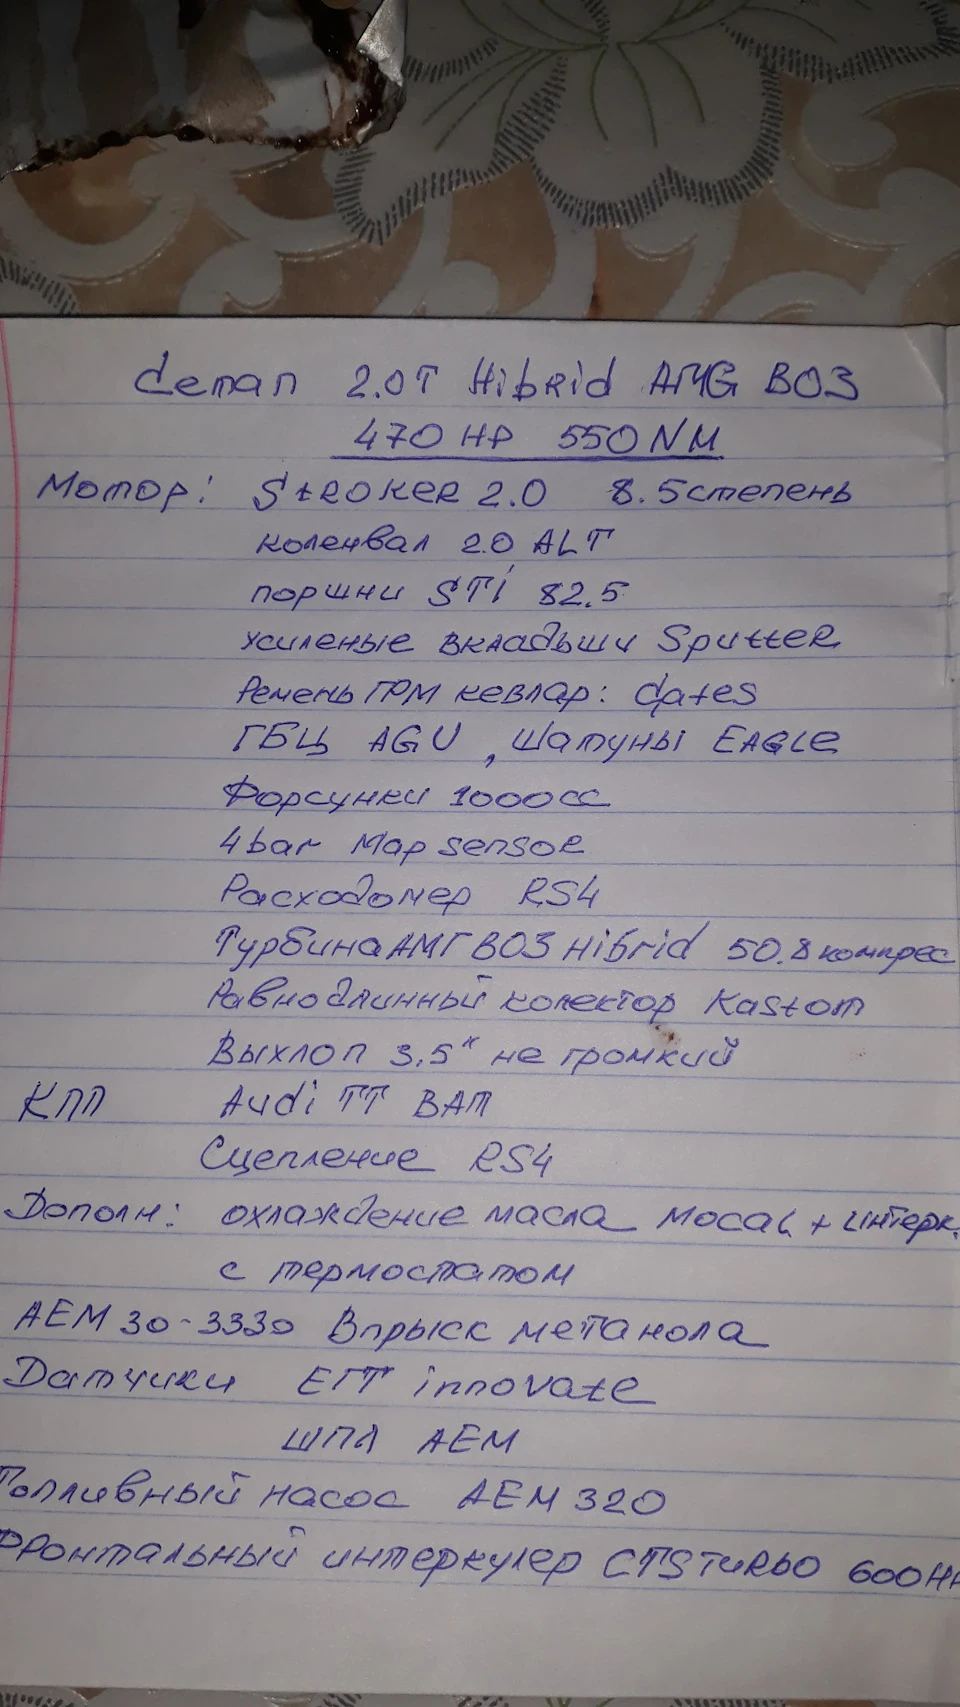 Сетап 2.0T Hibrid AMG B03
470 HP 550 NM
Мотор: StROKER 2.0 8.5 степень
коленвал 2.0 ALT
поршни STi 82.5
усиленые вкладыши SputteR
Ремень ГРМ кевлар: Gates
ГБЦ AGU, Шатуны EAGLe
Форсунки 1000cc
4bar Map sensoR
Расходомер RS4
Турбина АМГ B03 Hibrid 50.8 компрес
Равнодлинный колектор Kastom
Выхлоп 3.5" не громкий
КПП Audi TT BAM
Сцепление RS4
Дополн: охлаждение масла MOCAL + интерк.
с термостатом
AEM 30-3330 Впрыск метанола
Датчики ЕГТ innovate
ШПЛ AEM
Топливный насос AEM 320
Фронтальный интеркулер CTS TURBO 600HP